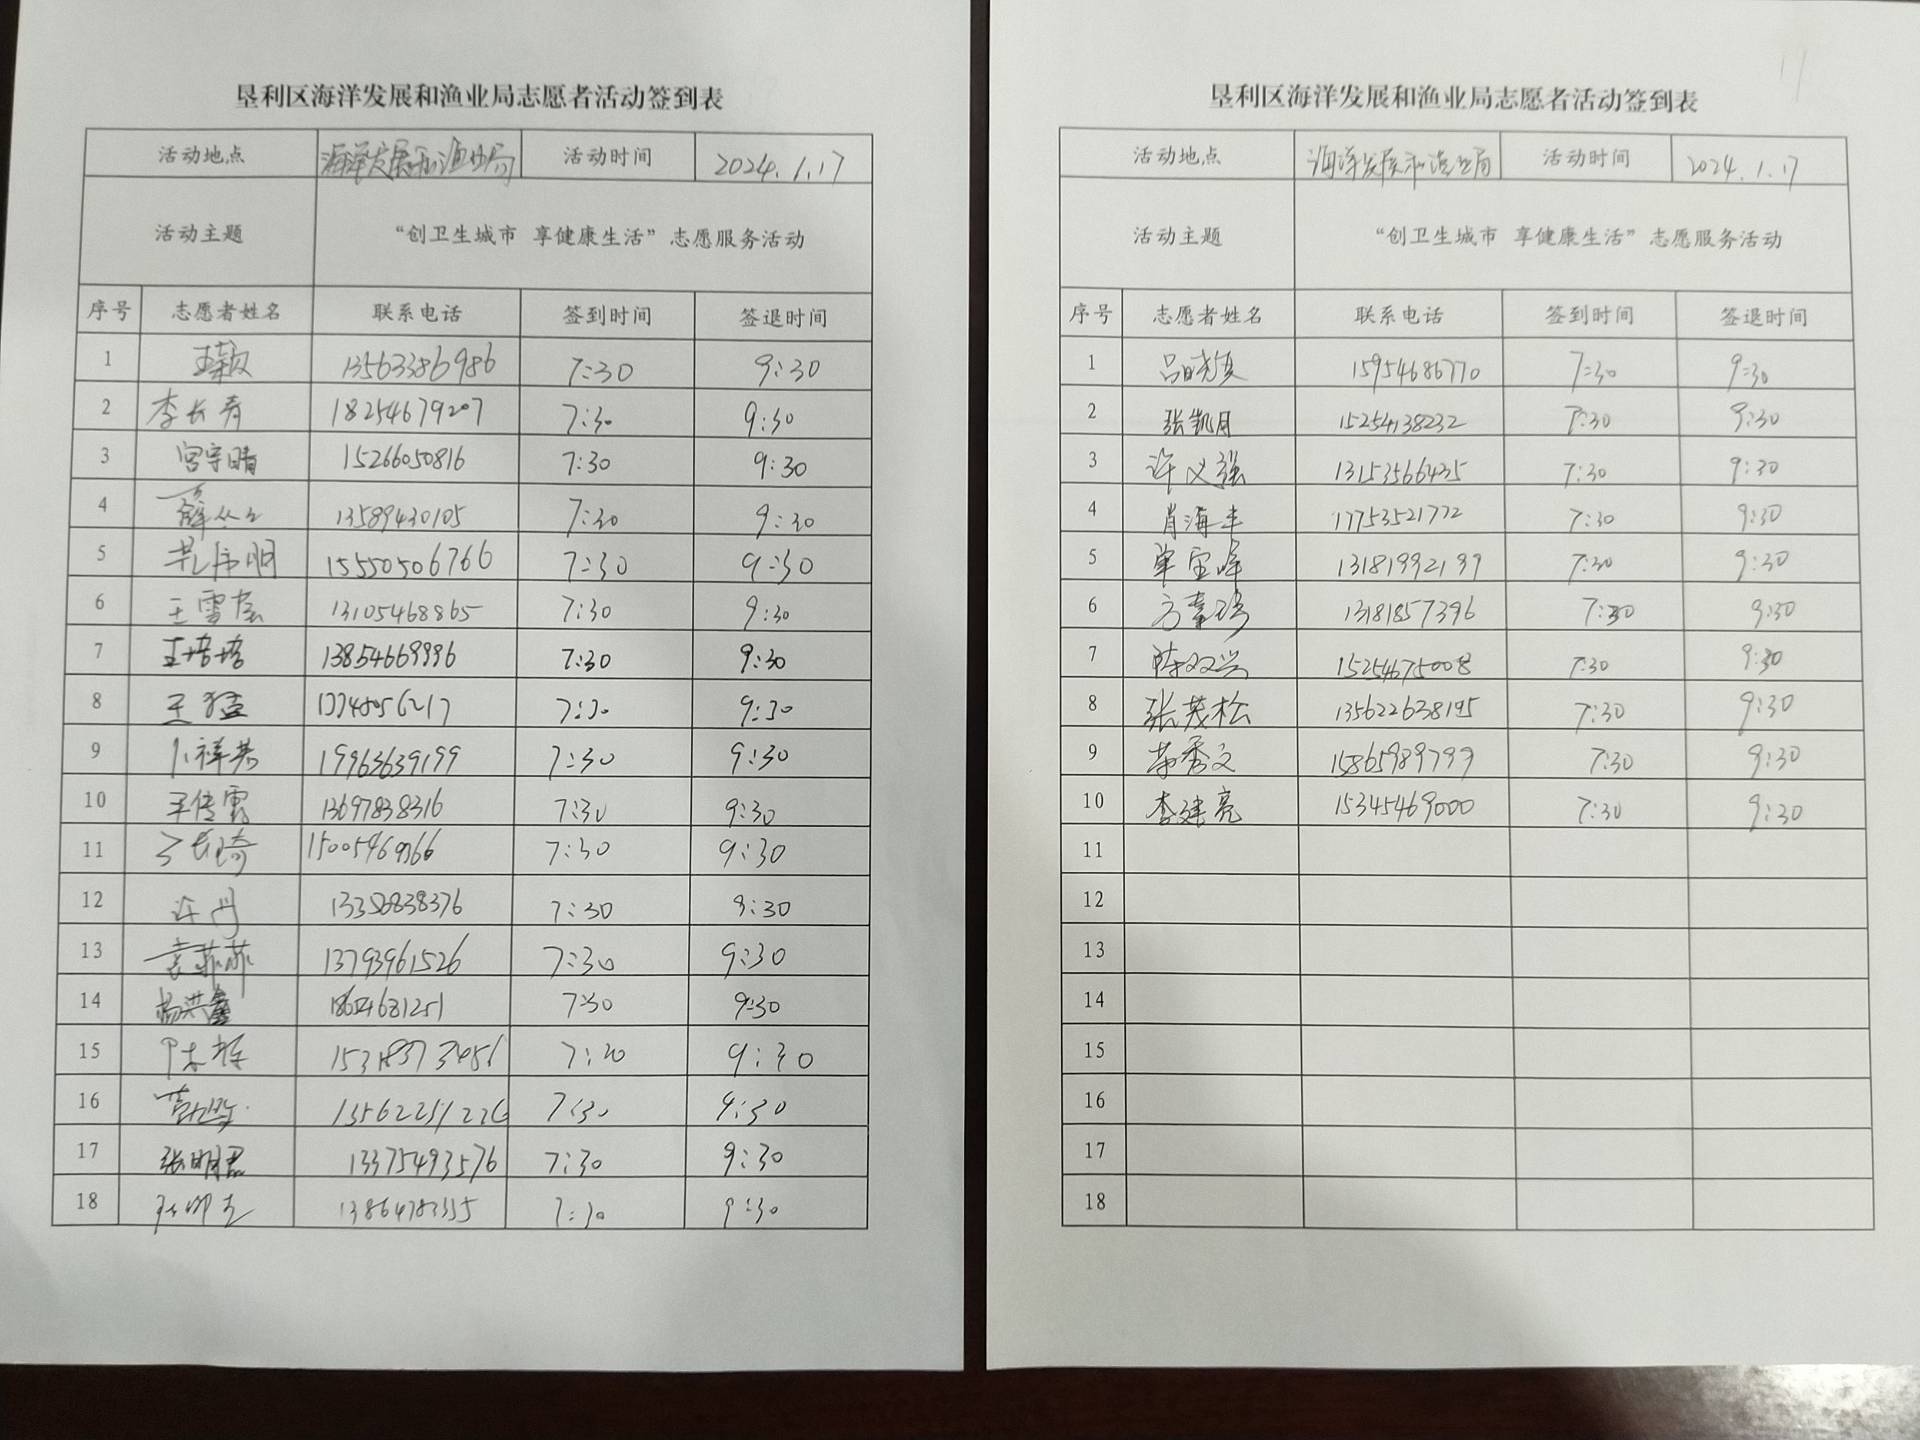 垦利区海洋发展和渔业局志愿者活动签到表
活动地点 海洋发展和渔业局 活动时间 2024.1.17
活动主题 “创卫生城市 享健康生活”志愿服务活动
序号 志愿者姓名 联系电话 签到时间 签退时间
1 王颖 13563386986 7:30 9:30
2 李长青 18254679207 7:30 9:30
3 宫宇晴 15266050816 7:30 9:30
4 薛丛丛 13589430105 7:30 9:30
5 15550506766 7:30 9:30
6 13105468865 7:30 9:30
7 王培培 13854669996 7:30 9:30
8 王猛 7:30 9:30
9 19963639199 7:30 9:30
10 王传霞 13697838316 7:30 9:30
11 7:30 9:30
12 许丹 7:30 9:30
13 袁菲菲 13793961526 7:30 9:30
14 杨洪鑫 7:30 9:30
15 7:30 9:30
16 13562251226 7:30 9:30
17 张明君 13375493576 7:30 9:30
18 7:30 9:30
垦利区海洋发展和渔业局志愿者活动签到表
活动地点 海洋发展和渔业局 活动时间 2024.1.17
活动主题 “创卫生城市 享健康生活”志愿服务活动
序号 志愿者姓名 联系电话 签到时间 签退时间
1 15954686770 7:30 9:30
2 张凯月 15254138232 7:30 9:30
3 许义强 13153566435 7:30 9:30
4 肖海丰 17753521772 7:30 9:30
5 单宝峰 13181992199 7:30 9:30
6 13181857396 7:30 9:30
7 陈双兴 15254675008 7:30 9:30
8 张茂松 7:30 9:30
9 15865989799 7:30 9:30
10 李建亮 15345469000 7:30 9:30
11
12
13
14
15
16
17
18